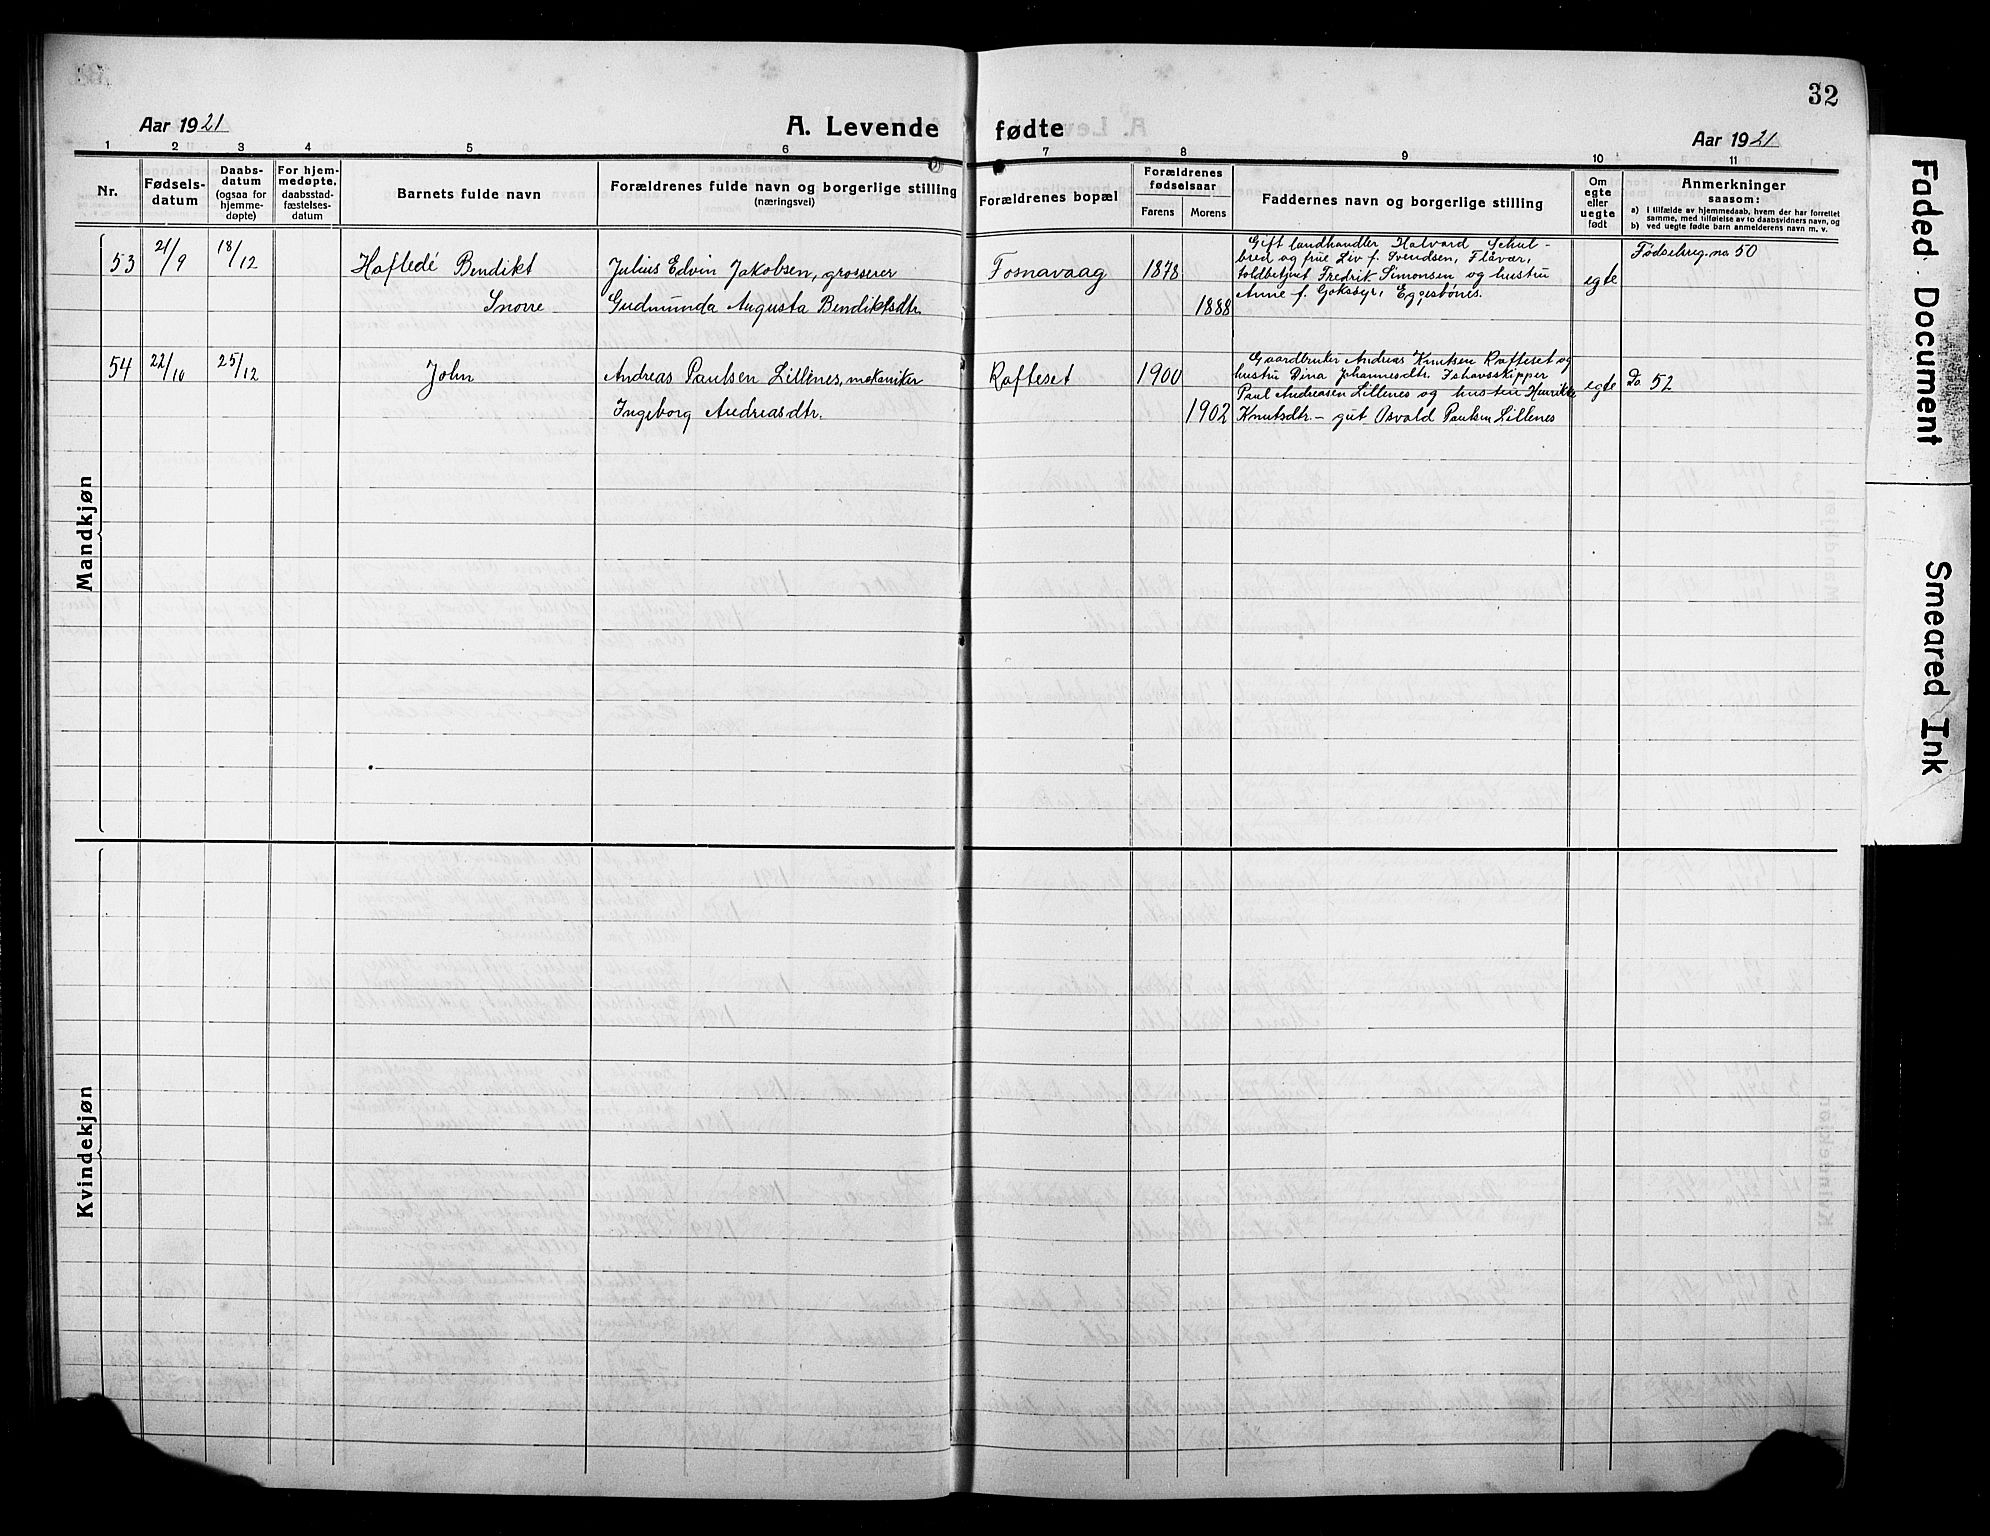 32
Aar 1921
A. Levende fødte
Aar 1921
1 2 3 4 5 6 7 8 9 10 11
Nr.
Fødsels-
datum
Daabs-
datum
(ogsaa for
hjemme-
døpte)
For hjem-
medøpte,
daabsstad-
fæstelses-
datum
Barnets fulde navn
Forældrenes fulde navn og borgerlige stilling
(næringsvei)
Forældrenes bopæl
Forældrenes
fødselsaar
Farens Morens
Faddernes navn og borgerlige stilling
Om
egte
eller
uegte
født
Anmerkninger
saasom:
a) I tilfælde av hjemmedaab, hvem der har forrettet
samme, med tilføielse av to daabsvidners navn, og
b) ved uegte fødte barn anmelderens navn m. v.
Mandkjøn
53
21/9
18/12
Hafledé Bendikt
Snorre
Julius Edvin Jakobsen, grosserer
Gudmunda Augusta Bendiktsdtr.
Fosnavaag
1878
1888
Gift landhandler Halvard Schul-
bred og frue Liv f. Svendsen, Flåvær,
toldbetjent Fredrik Simonsen og hustru
Anne f. Goksøyr, Eggesbønes.
egte
Fødselreg. no 50
54
22/10
25/12
John
Andreas Paulsen Lillenes, mekaniker
Ingeborg Andreasdtr.
Rafteset
1900
1902
Gaardbruker Andreas Knutsen Rafteset og
hustru Dina Johannesdtr. Ishavsskipper
Paul Andreasen Lillenes og hustru Henrikke
Knutsdtr – gut Osvald Paulsen Lillenes
egte
Do 52
Kvindekjøn
Faded Document
Smeared Ink